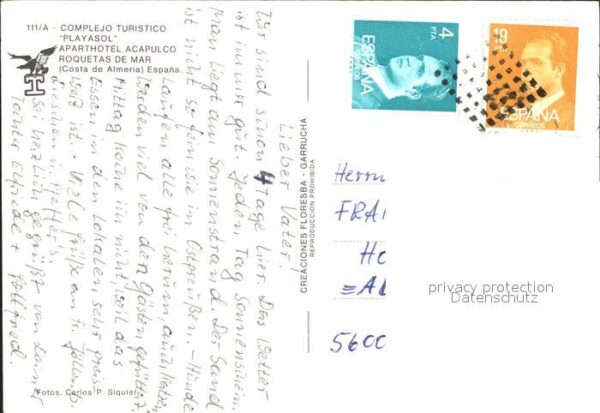 111/A - COMPLEJO TURISTICO
"PLAYASOL"
APARTHOTEL ACAPULCO
ROQUETAS DE MAR
(Costa de Almeria) España
H
Lieber Vater!
Wir sind schon 4 Tage hier. Das Wetter
ist immer gut. Jeden Tag Sonnenschein.
Man liegt am Sonnenstrand. Der Sand
ist nicht so fein wie in Ostpreußen. - Hunde
laufen alle frei herum, auch Katzen
werden viel von den Gästen gefüttert.
Mittag keine im nicht, weil das
Essen in den Lokalen sehr preis-
wert ist. Viele Grüße an
Sei herzlich gegrüßt von Deiner
Tochter Elfriede + Gottfried.
Fotos. Carlos P. Siquier
CREACIONES FLORESBA - GARRUCHA
REPRODUCCION PROHIBIDA
4
PTA
ESPAÑA
CORREOS
19
PTA
ESPAÑA
CORREOS
Herrn
FRA
5600
privacy protection
Datenschutz